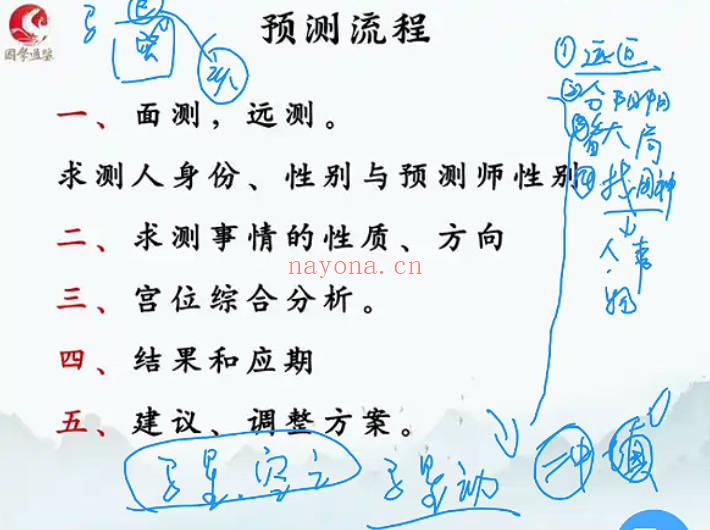 国学通鉴
预测流程
一、面测，远测。
求测人身份、性别与预测师性别
二、求测事情的性质、方向
nayona.cn
三、宫位综合分析。
四、结果和应期
五、建议、调整方案。
①远近
②分阴阳
③看大局
④找用神
人事
物